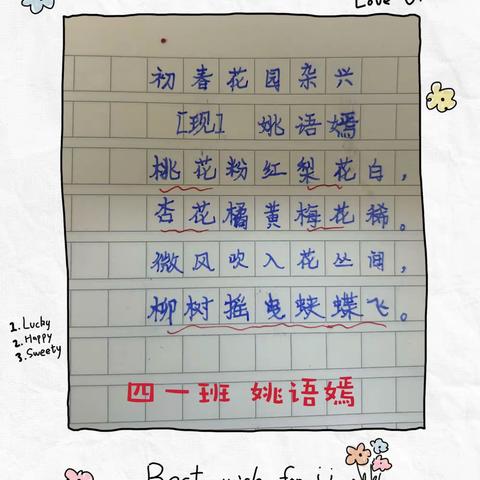 初春花园杂兴
[现] 姚语嫣
桃花粉红梨花白，
杏花橘黄梅花稀。
微风吹入花丛间，
柳树摇曳蛱蝶飞。
四一班 姚语嫣
1. Lucky
2. Happy
3. Sweety